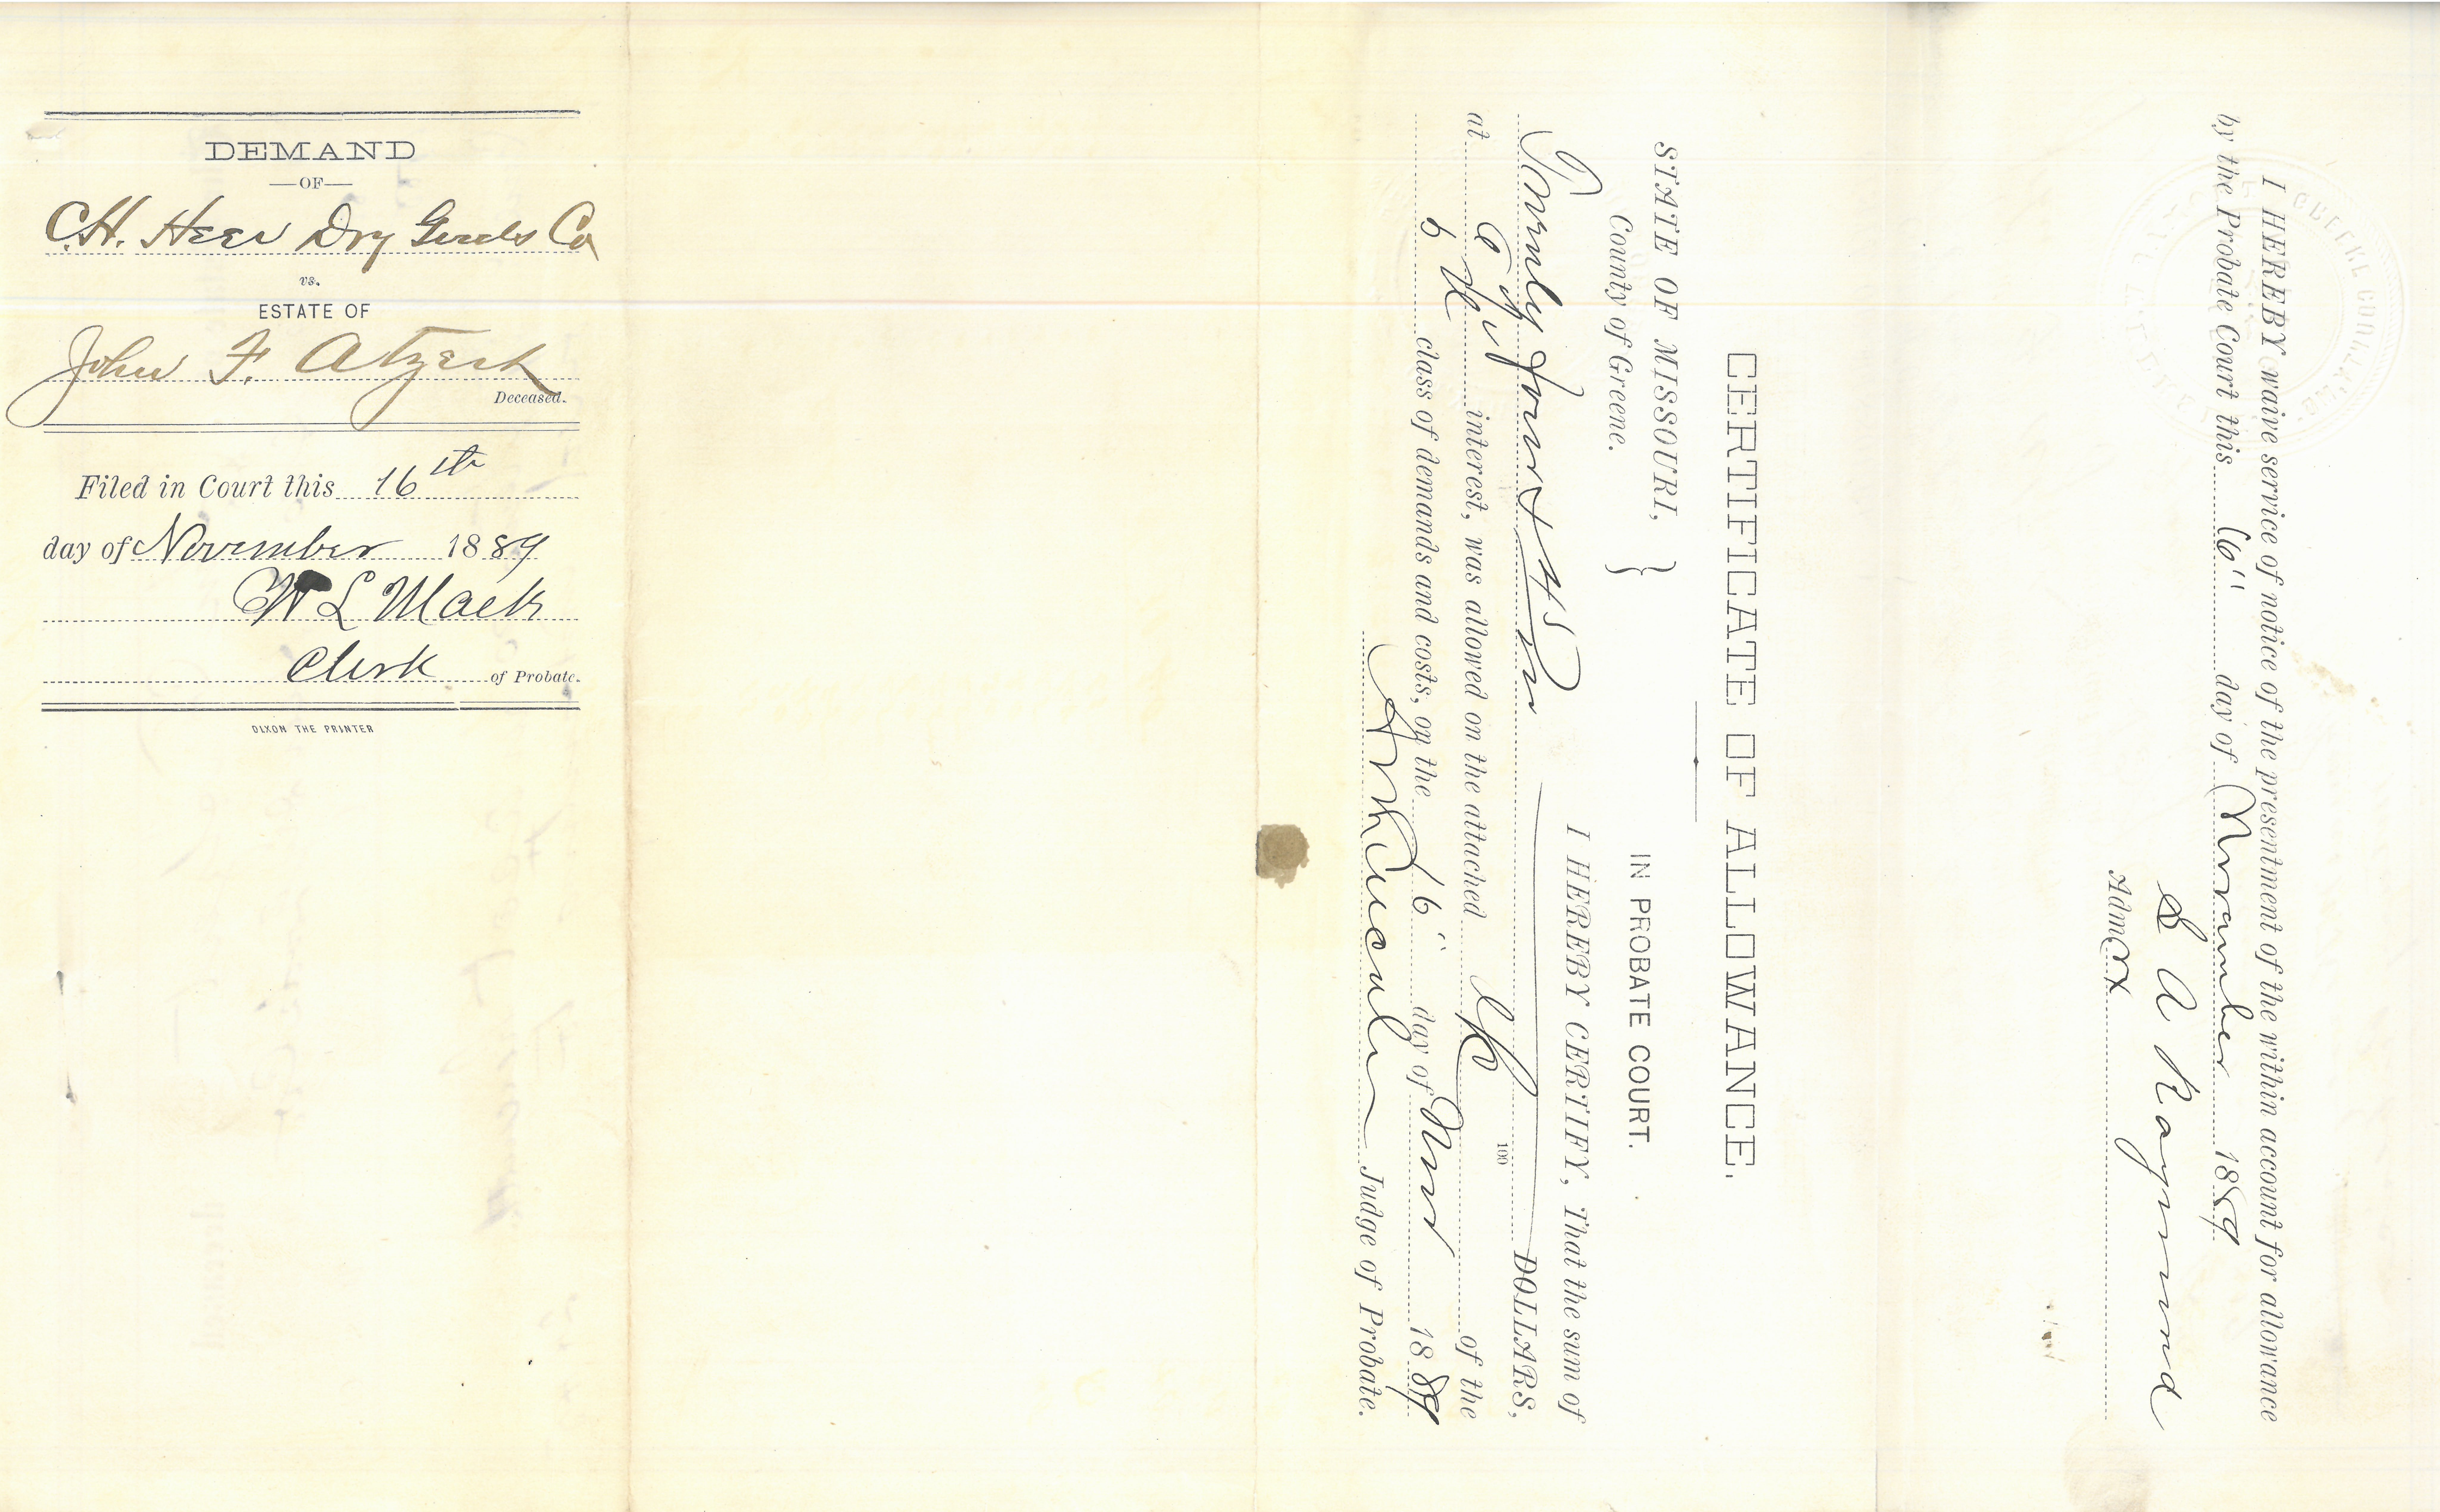 DEMAND
—OF—
C.H. Heer Dry Goods Co
vs.
ESTATE OF
John F. Atzert
Deceased.
Filed in Court this 16th
day of November 1889
W L Mack
Clerk of Probate.
DIXON THE PRINTER
CERTIFICATE OF ALLOWANCE.
STATE OF MISSOURI,
County of Greene. } IN PROBATE COURT.
I HEREBY CERTIFY, That the sum of
Twenty four & 45/100 DOLLARS,
at interest, was allowed on the attached of the
class of demands and costs, on the 16" day of Nov 1889
Judge of Probate.
I HEREBY waive service of notice of the presentment of the within account for allowance
by the Probate Court this 16" day of November 1889
S A Raymond
Admrx